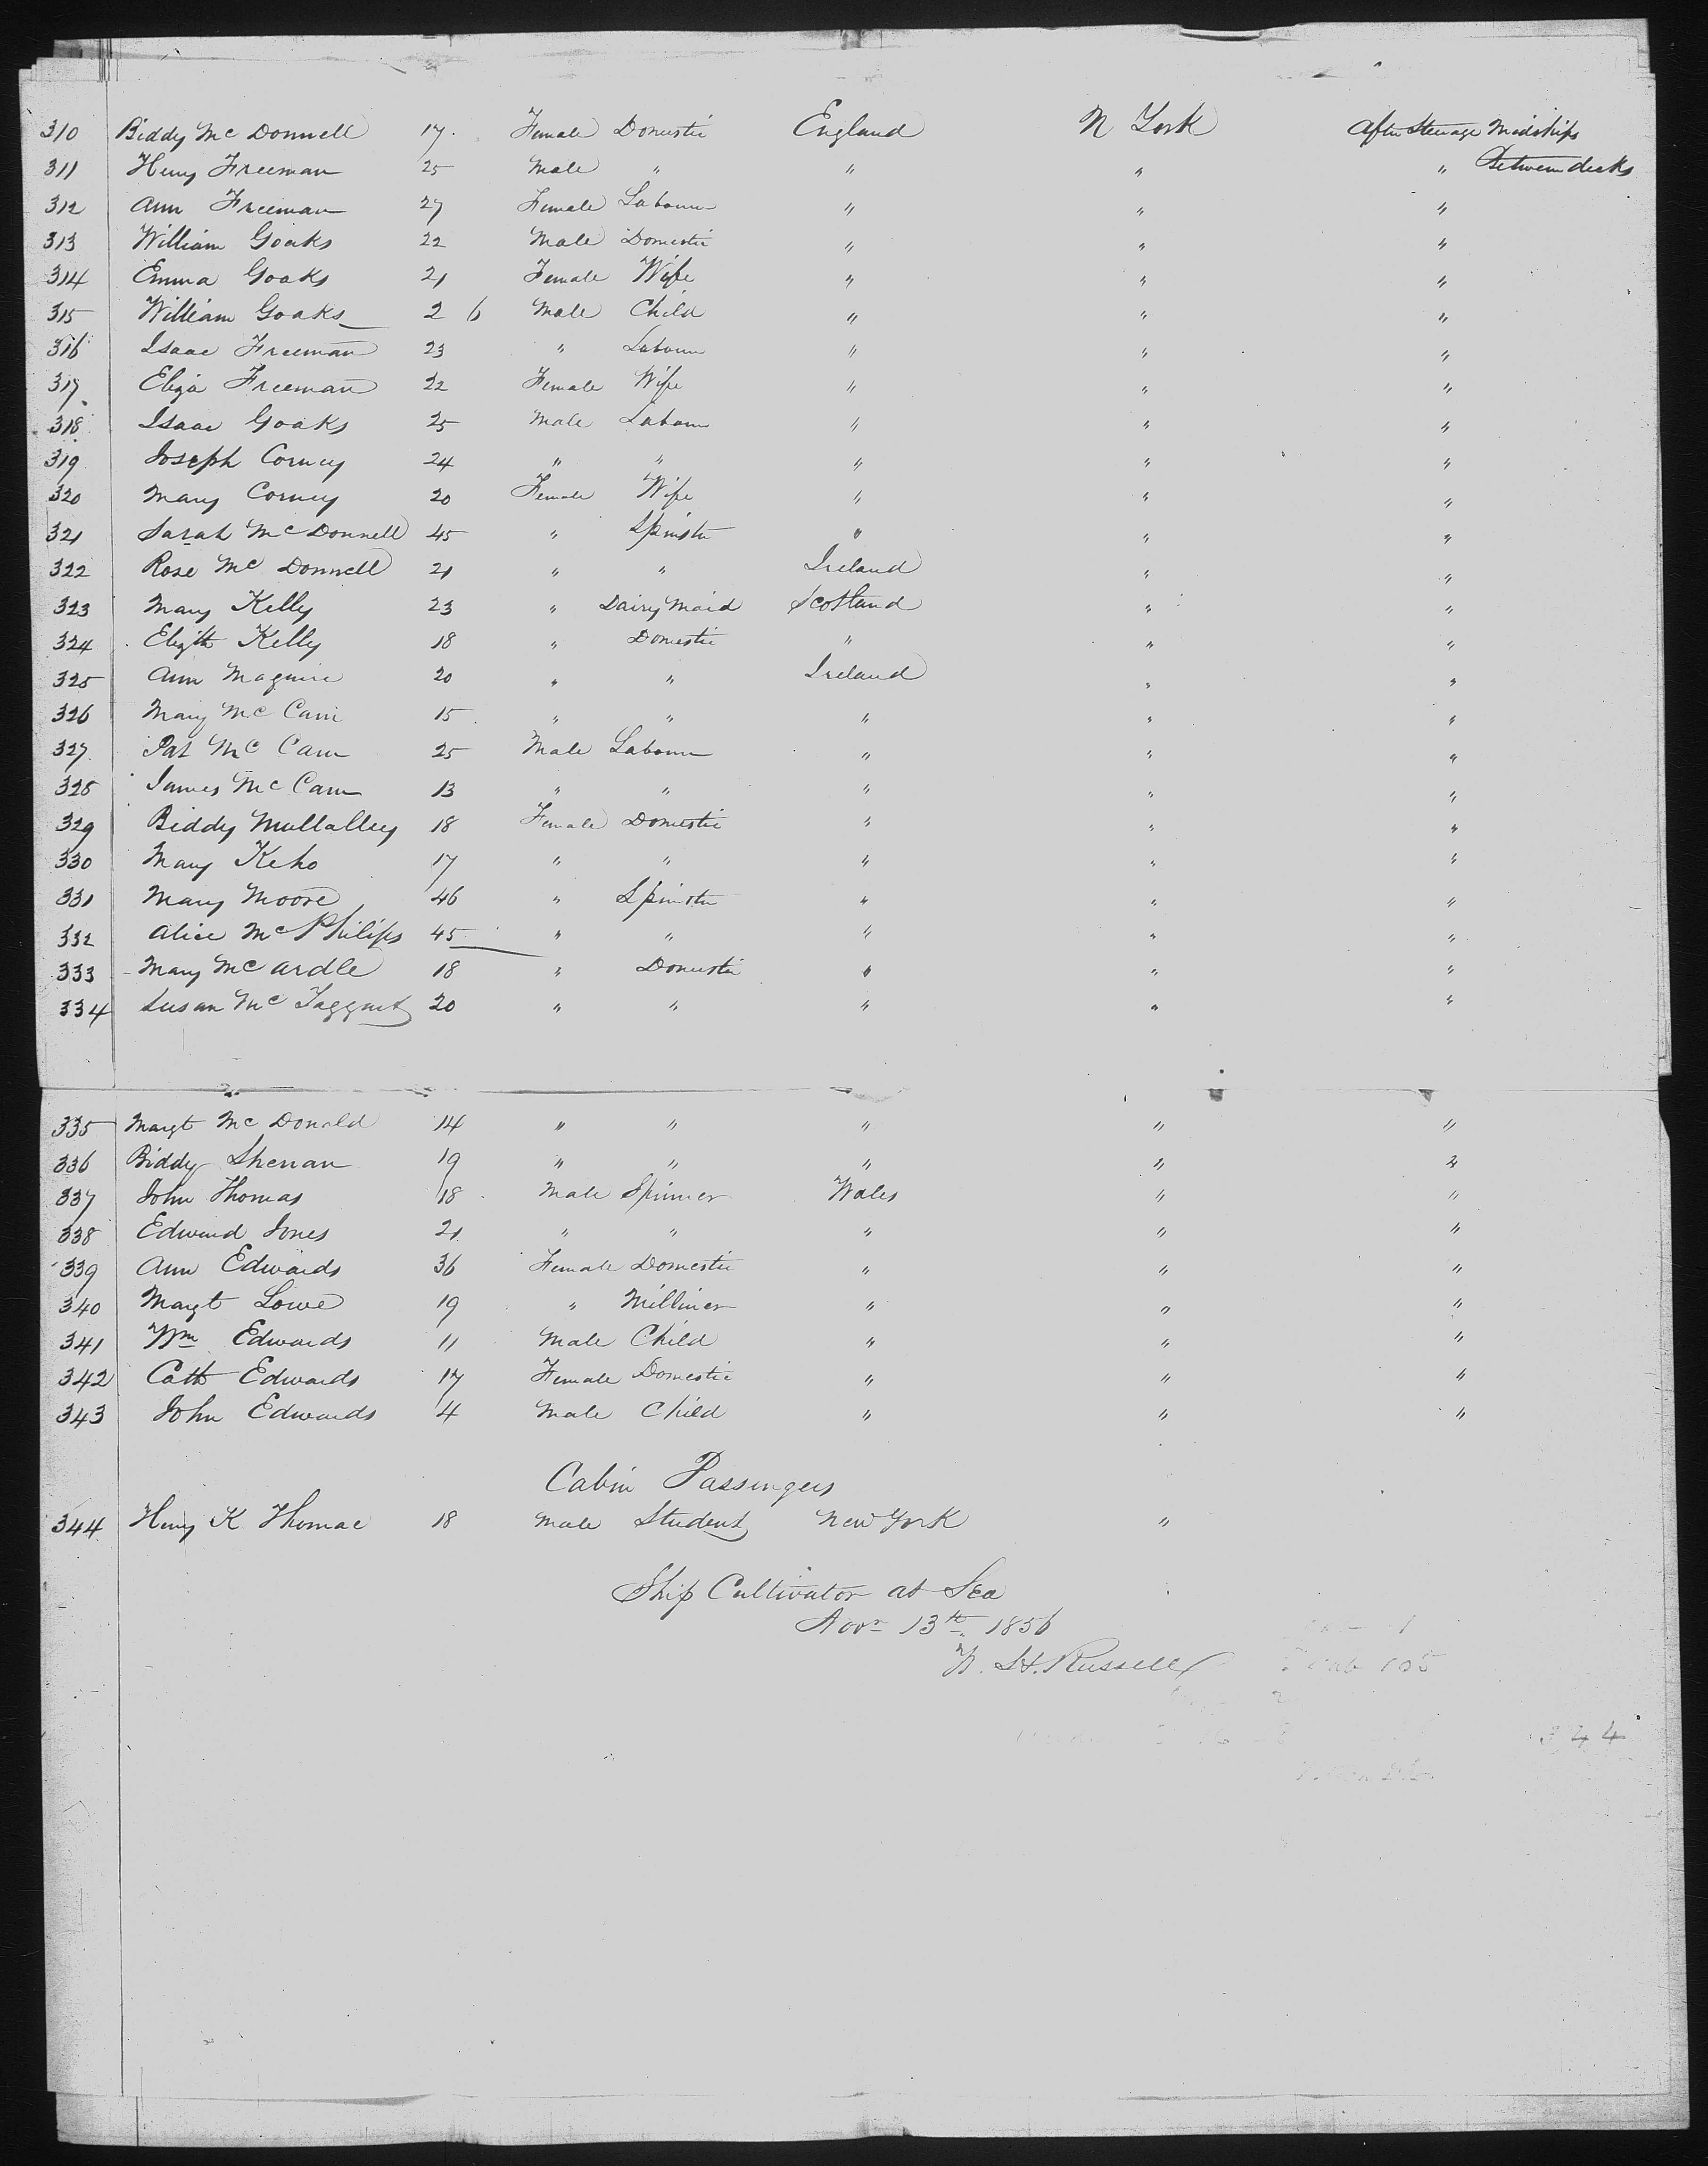 310 Biddy McDonnell 17 Female Domestic England N York After Steerage Midships
311 Henry Freeman 25 Male " " " " Between decks
312 Ann Freeman 27 Female Labourer " " "
313 William Goaks 22 Male Domestic " " "
314 Emma Goaks 21 Female Wife " " "
315 William Goaks 2 6 Male Child " " "
316 Isaac Freeman 23 " Labourer " " "
317 Eliza Freeman 22 Female Wife " " "
318 Isaac Goaks 25 Male Labourer " " "
319 Joseph Corney 24 " " " " "
320 Mary Corney 20 Female Wife " " "
321 Sarah McDonnell 45 " Spinster " " "
322 Rose McDonnell 21 " " Ireland " "
323 Mary Kelly 23 " Dairy Maid Scotland " "
324 Elizth Kelly 18 " Domestic " " "
325 Ann Maguire 20 " " Ireland " "
326 Mary McCann 15 " " " " "
327 Pat McCann 25 Male Labourer " " "
328 James McCann 13 " " " " "
329 Biddy Mullalley 18 Female Domestic " " "
330 Mary Keho 17 " " " " "
331 Mary Moore 46 " Spinster " " "
332 Alice McPhilips 45 " " " " "
333 Mary McArdle 18 " Domestic " " "
334 Susan McTaggart 20 " " " " "
335 Margt McDonald 14 " " " " "
336 Biddy Shenan 19 " " " " "
337 John Thomas 18 Male Spinner Wales " "
338 Edward Jones 21 " " " " "
339 Ann Edwards 36 Female Domestic " " "
340 Margt Lowe 19 " Milliner " " "
341 Wm Edwards 11 Male Child " " "
342 Cath Edwards 17 Female Domestic " " "
343 John Edwards 4 Male Child " " "
Cabin Passengers
344 Henry K Thomae 18 Male Student New York "
Ship Cultivator at Sea
Novr 13th 1856
W. H. Russell
105
344